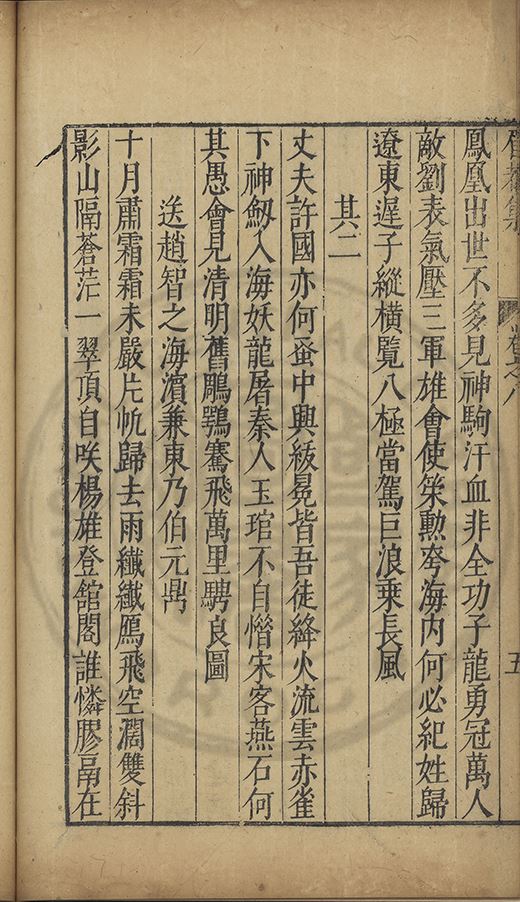 卷之八
五
鳳凰出世不多見神駒汗血非全功子龍勇冠萬人
敵劉表氣壓三軍雄會使策勲穹海内何必紀姓歸
遼東遲子縱橫覽八極當駕巨浪乗長風
其二
丈夫許國亦何蚤中興紱冕皆吾徒絳火流雲赤雀
下神劒入海妖龍屠秦人玉琯不自惜宋客燕石何
其愚會見清明舊鵰鶚騫飛萬里騁良圖
送趙智之海濱兼東乃伯元鼎
十月肅霜霜未嚴片帆歸去雨纖纖鴈飛空濶雙斜
影山隔蒼茫一翠頂自咲楊雄登舘閣誰憐膠鬲在